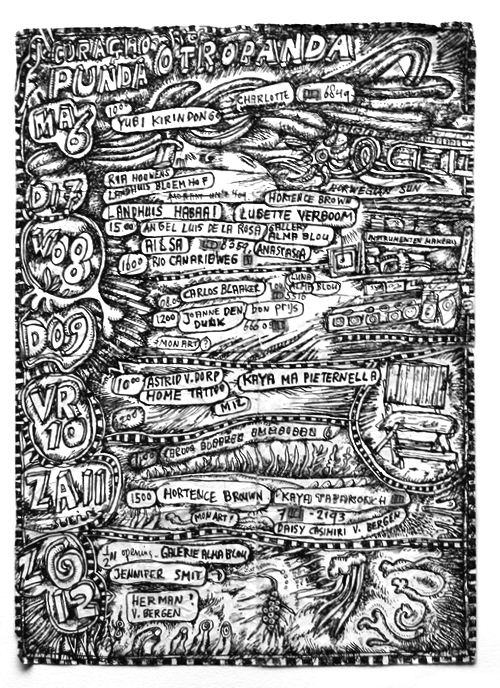 CURAÇAO
PUNDA OTROBANDA
MA 6
1000
YUBI KIRINDONGO
CHARLOTTE 6849
DI 7
RIA HOUWENS
LANDHUIS BLOEMHOF
NORWEGIAN SUN
HORTENCE BROWN
LANDHUIS HABAAI
LUSETTE VERBOOM
WO 8
1500 ANGEL LUIS DE LA ROSA
GALLERY
ALMA BLOU
INSTRUMENTEN MAKERIJ
AI & SA 8359
ANASTASIA
1600 RIO CANARIOWEG
LUNA
ALMA BLOU
5316
CARLOS BLAAKER
DO 9
1200 JOANNE DEN
DUNK
DON PRIJS
666 09
MON ART?
VR 10
1000 ASTRID V. DORP
HOME TATTOO
KAYA MA PIETERNELLA
MIL
ZA 11
1500 HORTENCE BROWN
KAYA
MON ART!
7 - 2193
DAISY CASIMIRI V. BERGEN
ZO 12
opening - GALERIE ALMA BLOU
JENNIFER SMIT
HERMAN
V. BERGEN